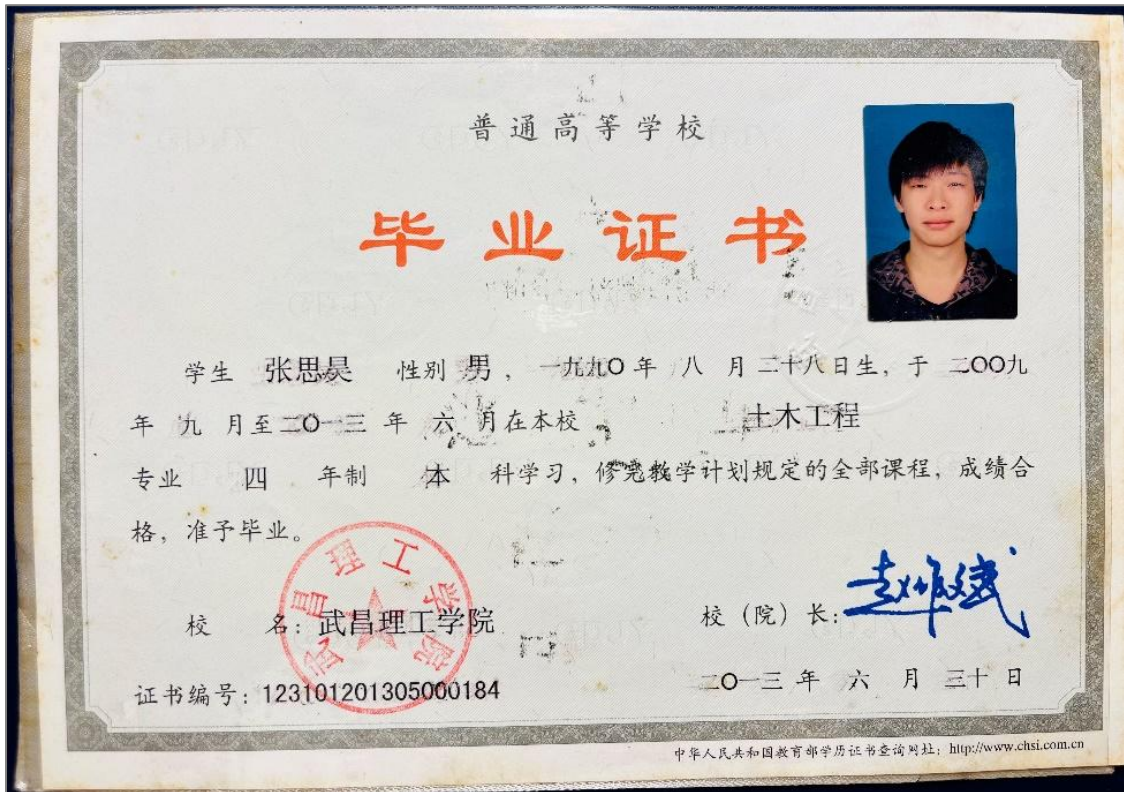 普通高等学校
毕业证书
学生 张思昊 性别 男，一九九〇年 八 月二十八日生，于 二〇〇九
年 九 月至二〇一三 年 六 月在本校 土木工程
专业 四 年制 本 科学习，修完教学计划规定的全部课程，成绩合
格，准予毕业。
武昌理工学院
校 名：武昌理工学院 校（院）长：赵作斌
证书编号：123101201305000184 二〇一三 年 六 月 三十 日
中华人民共和国教育部学历证书查询网址：http://www.chsi.com.cn